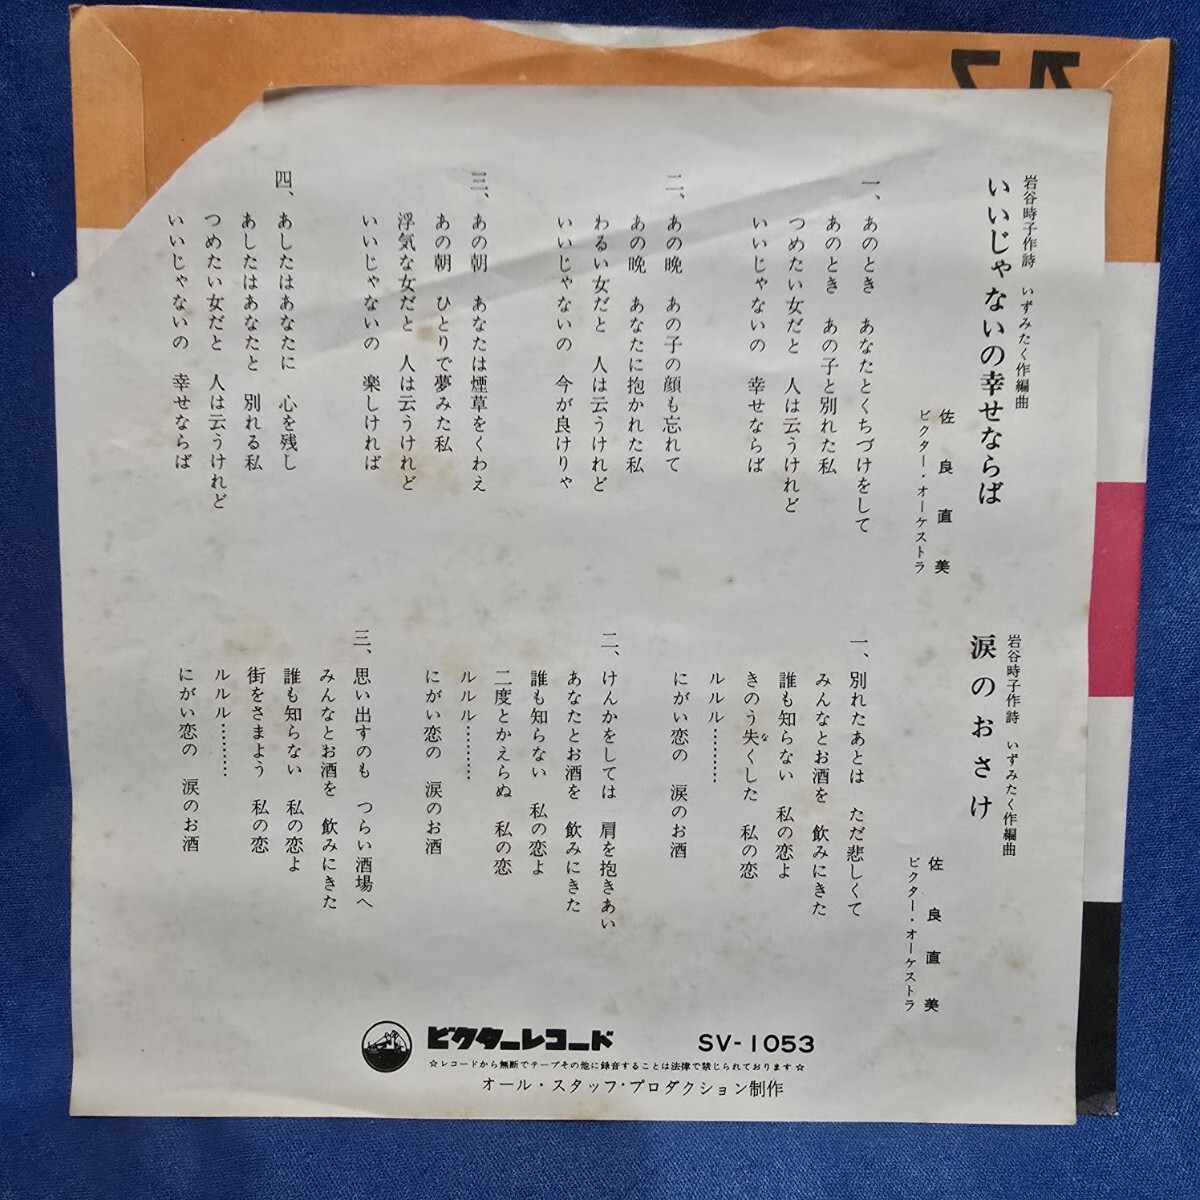 岩谷時子作詩 いずみたく作編曲
いいじゃないの幸せならば
佐良直美
ビクター・オーケストラ
一、あのとき あなたとくちづけをして
あのとき あの子と別れた私
つめたい女だと 人は云うけれど
いいじゃないの 幸せならば
二、あの晩 あの子の顔も忘れて
あの晩 あなたに抱かれた私
わるい女だと 人は云うけれど
いいじゃないの 今が良けりゃ
三、あの朝 あなたは煙草をくわえ
あの朝 ひとりで夢みた私
浮気な女だと 人は云うけれど
いいじゃないの 楽しければ
四、あしたはあなたに 心を残し
あしたはあなたと 別れる私
つめたい女だと 人は云うけれど
いいじゃないの 幸せならば
岩谷時子作詩 いずみたく作編曲
涙のおさけ
佐良直美
ビクター・オーケストラ
一、別れたあとは ただ悲しくて
みんなとお酒を 飲みにきた
誰も知らない 私の恋よ
きのう失くした 私の恋
な
ルルル………
にがい恋の 涙のお酒
二、けんかをしては 肩を抱きあい
あなたとお酒を 飲みにきた
誰も知らない 私の恋よ
二度とかえらぬ 私の恋
ルルル………
にがい恋の 涙のお酒
三、思い出すのも つらい酒場へ
みんなとお酒を 飲みにきた
誰も知らない 私の恋よ
街をさまよう 私の恋
ルルル………
にがい恋の 涙のお酒
ビクターレコード SV-1053
☆レコードから無断でテープその他に録音することは法律で禁じられております☆
オール・スタッフ・プロダクション制作